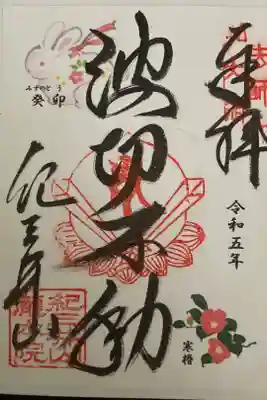 奉拝
令和五年
寒椿
波切不動
みずのとう
癸卯
紀三井山